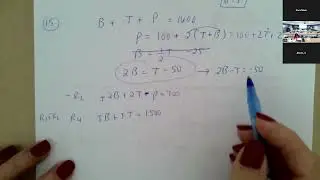 15
B + T + P = 1600
P = 100 + 2(T+B) = 100 + 2T + 2
B = ½T - 25
2B = T - 50 → 2B - T = -50
-R2 +2B + 2T - P = 100
R4 3B + 3T = 1500